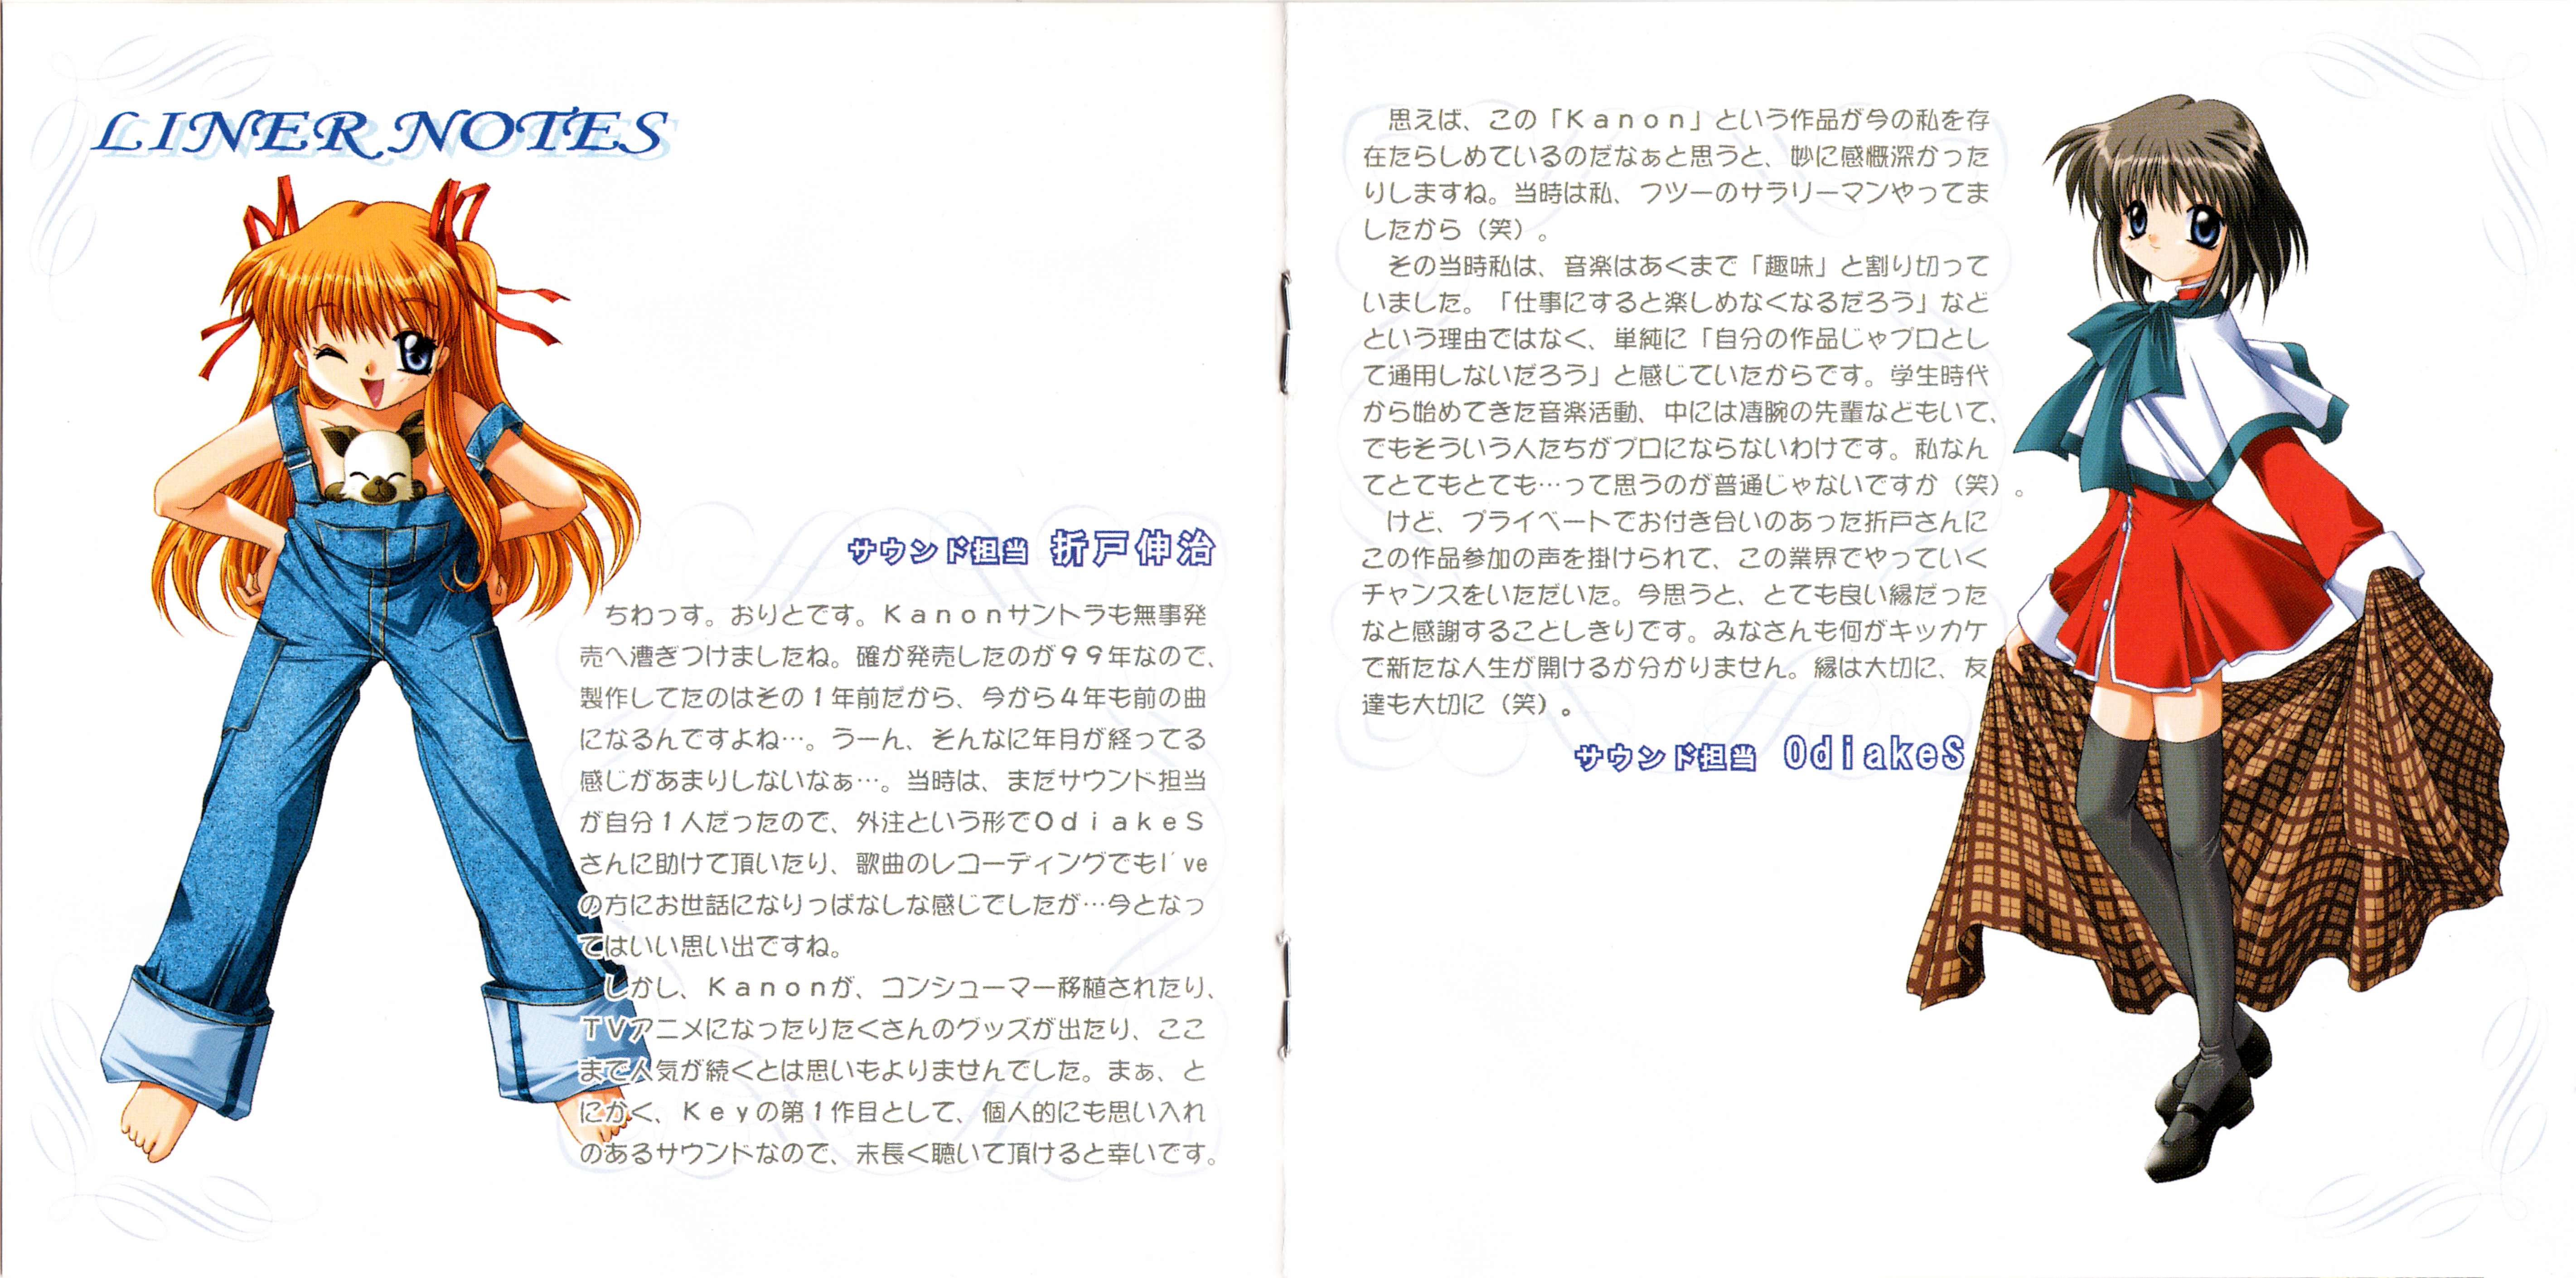 LINER NOTES
サウンド担当 折戸伸治
ちわっす。おりとです。Kanonサントラも無事発
売へ漕ぎつけましたね。確か発売したのが99年なので、
製作してたのはその1年前だから、今から4年も前の曲
になるんですよね…。うーん、そんなに年月が経ってる
感じがあまりしないなぁ…。当時は、まだサウンド担当
が自分1人だったので、外注という形でOdiakeS
さんに助けて頂いたり、歌曲のレコーディングでもI've
の方にお世話になりっぱなしな感じでしたが…今となっ
てはいい思い出ですね。
しかし、Kanonが、コンシューマー移植されたり、
TVアニメになったりたくさんのグッズが出たり、ここ
まで人気が続くとは思いもよりませんでした。まぁ、と
にかく、Keyの第1作目として、個人的にも思い入れ
のあるサウンドなので、末長く聴いて頂けると幸いです。
思えば、この「Kanon」という作品が今の私を存
在たらしめているのだなぁと思うと、妙に感慨深かった
りしますね。当時は私、フツーのサラリーマンやってま
したから（笑）。
その当時私は、音楽はあくまで「趣味」と割り切って
いました。「仕事にすると楽しめなくなるだろう」など
という理由ではなく、単純に「自分の作品じゃプロとし
て通用しないだろう」と感じていたからです。学生時代
から始めてきた音楽活動、中には凄腕の先輩などもいて、
でもそういう人たちがプロにならないわけです。私なん
てとてもとても…って思うのが普通じゃないですか（笑）。
けど、プライベートでお付き合いのあった折戸さんに
この作品参加の声を掛けられて、この業界でやっていく
チャンスをいただいた。今思うと、とても良い縁だった
なと感謝することしきりです。みなさんも何がキッカケ
で新たな人生が開けるか分かりません。縁は大切に、友
達も大切に（笑）。
サウンド担当 OdiakeS